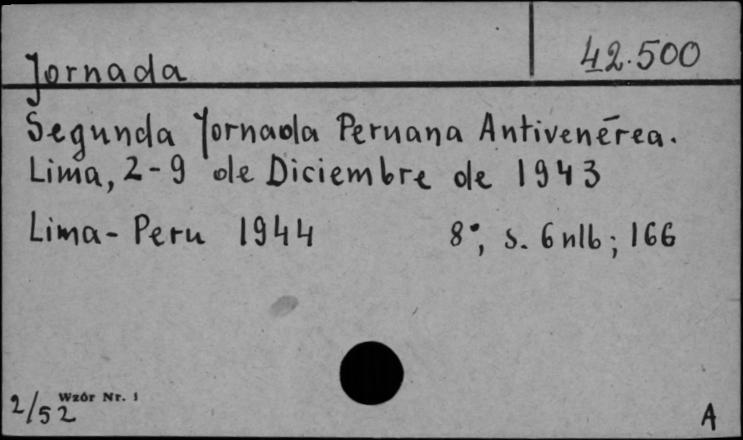 Jornada 42.500
Segunda Jornada Peruana Antivenérea.
Lima, 2-9 de Diciembre de 1943
Lima-Peru 1944 8°, s. 6 nlb; 166
Wzór Nr. 1
2/52 A